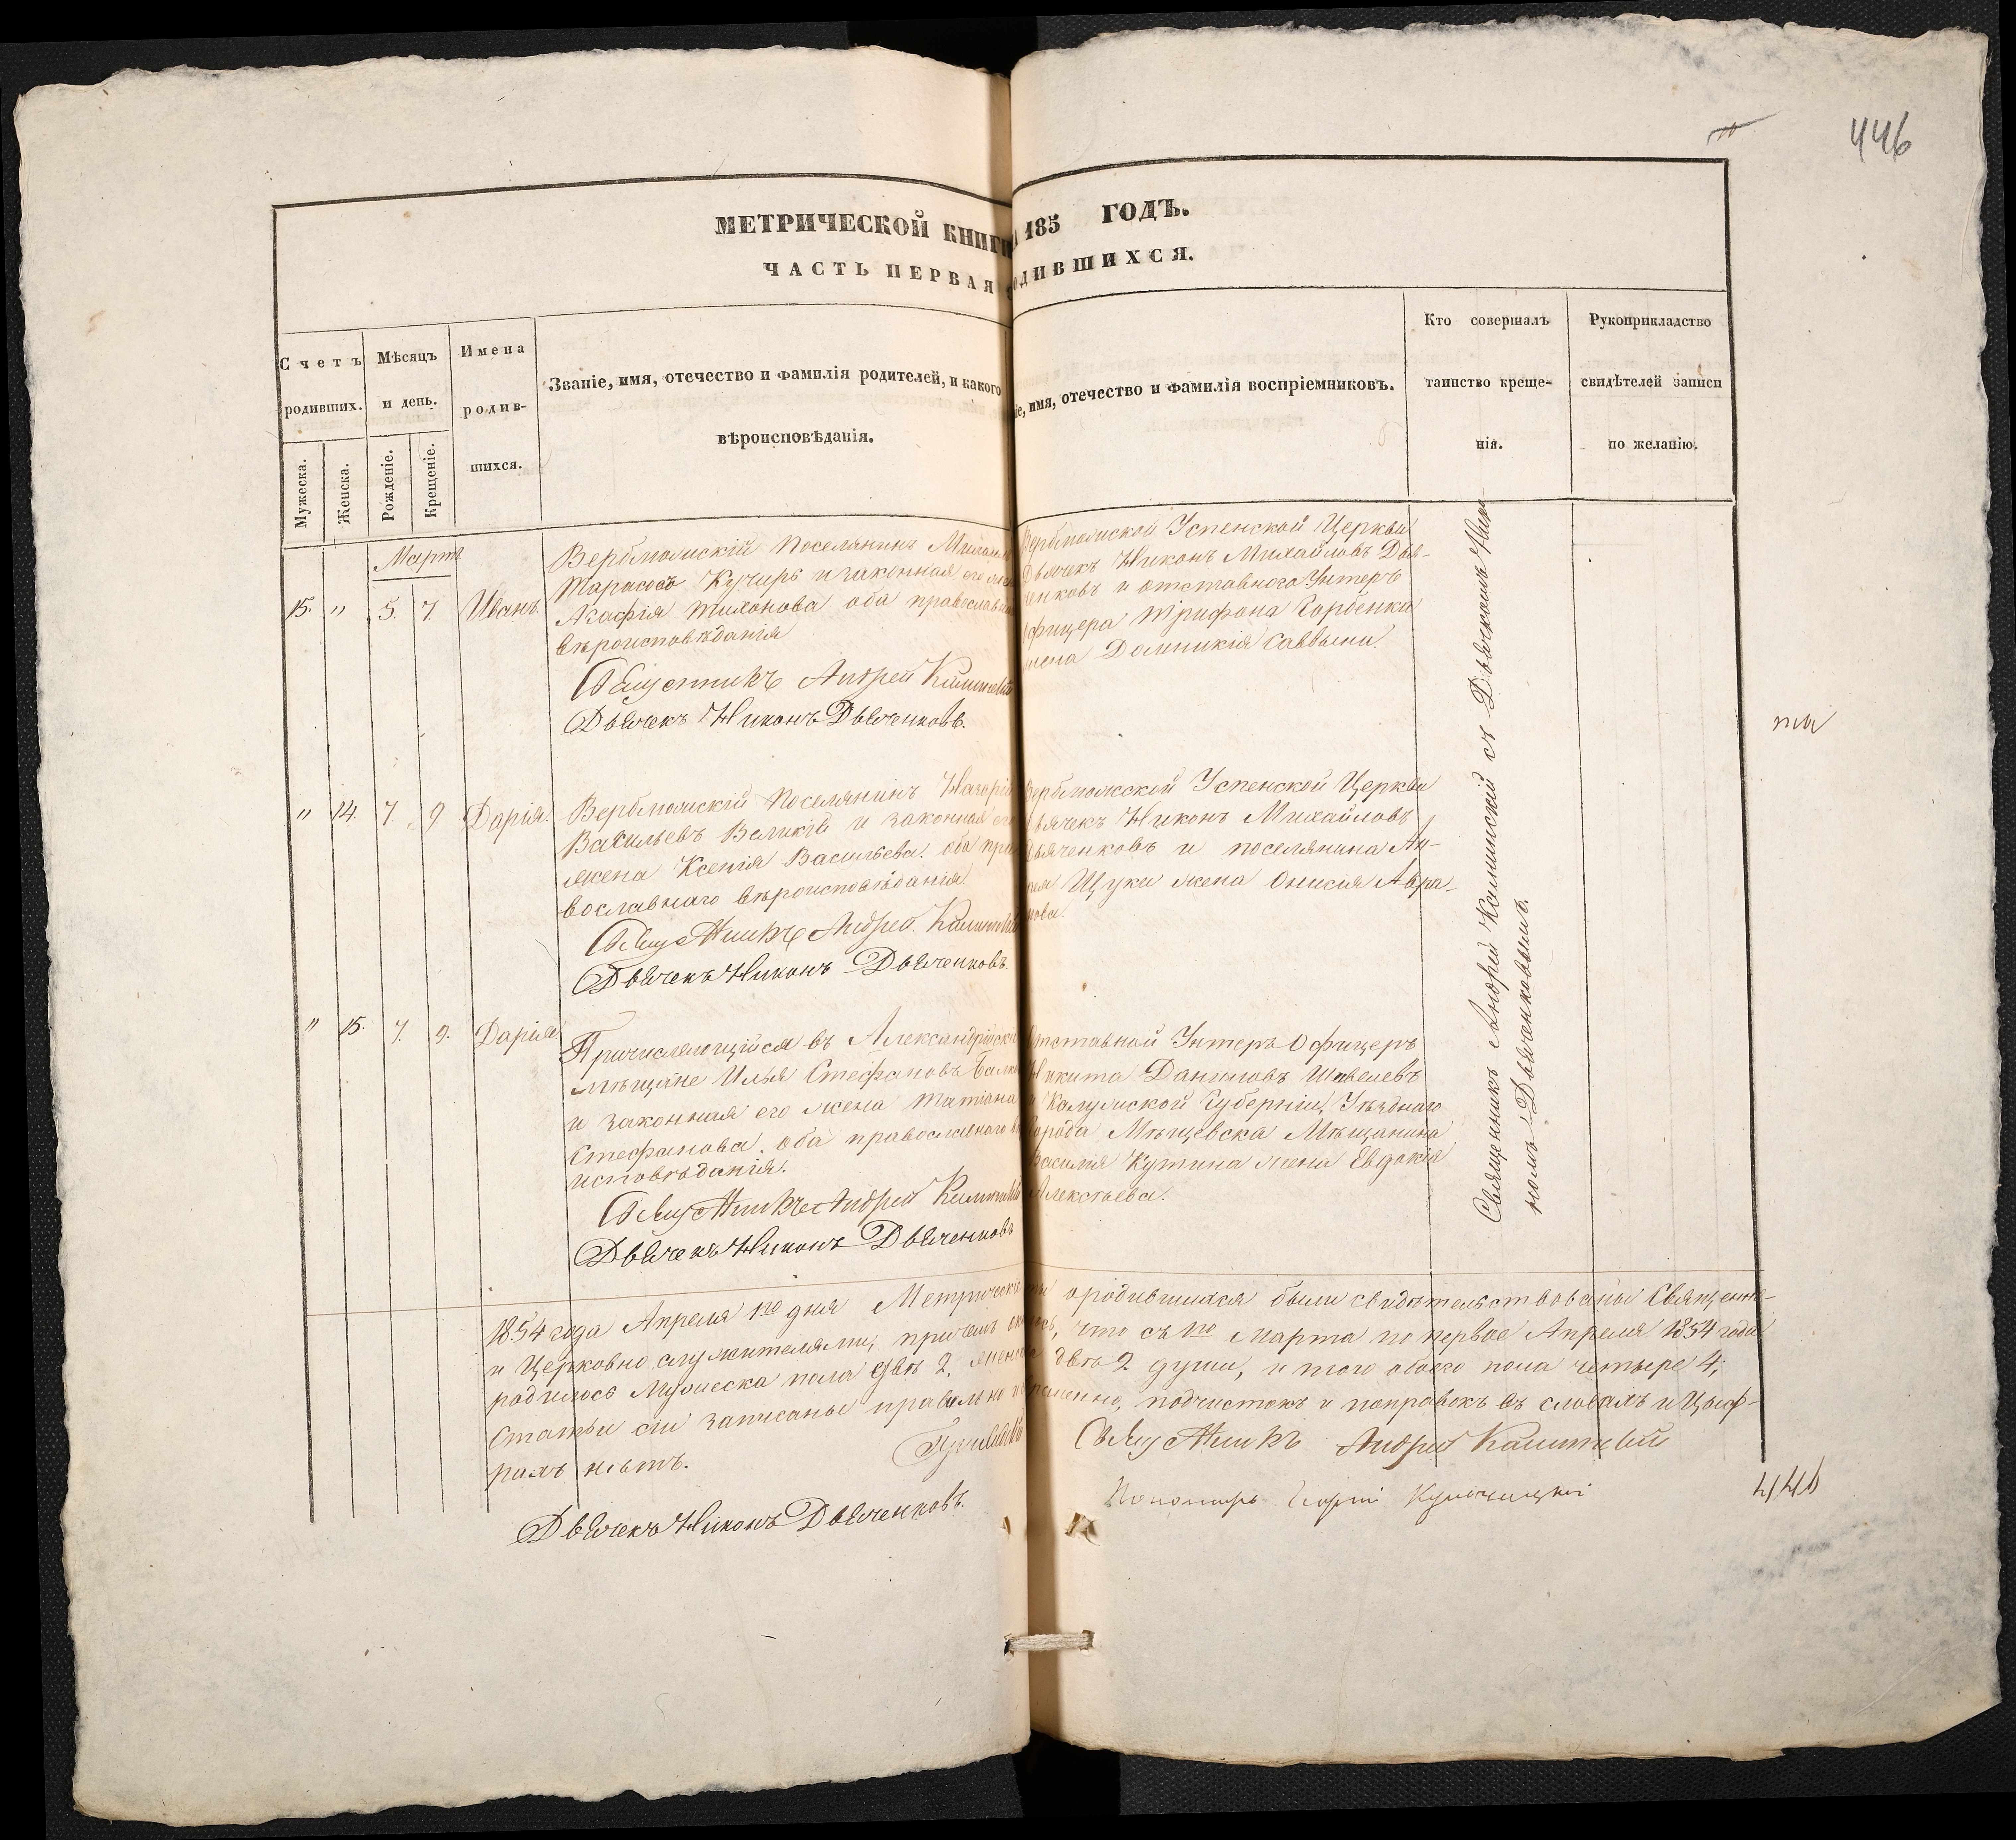 446
МЕТРИЧЕСКОЙ КНИГИ 185 ГОДЪ.
ЧАСТЬ ПЕРВАЯ ОДИВШИХСЯ.
Счетъ родивших.
Мужеска.
Женска.
Мѣсяцъ и день.
Рожденіе.
Крещеніе.
Имена родив-
шихся.
Званіе, имя, отечество и фамилія родителей, и какого
вѣроисповѣданія.
іе, имя, отечество и фамилія воспріемниковъ.
Кто совершалъ
таинство креще-
нія.
Рукоприкладство
свидѣтелей записи
по желанію.
Мартъ
15. " 5. 7. Иванъ.
Верблюжскій Поселянинъ
Тарасовъ Кучеръ и законная его
Агафія Тихонова оба православ
вѣроисповѣданія
Священникъ Андрей
Дьячекъ Никонъ Дьяченковъ.
Успенской Церкви
Дьячекъ Никонъ Михайловъ Дья-
енковъ и отставного Унтеръ
фицера Трифона Горбенки
жена Домникія Саввина.
" 14. 7. 9. Дарія.
Верблюжскій Поселянинъ
Васильевъ Великій и законная его
жена Ксенія Васильева. оба пра
вославнаго вѣроисповѣданія.
Священникъ Андрей
Дьячекъ Никонъ Дьяченковъ.
Успенской Церкви
Дьячекъ Никонъ Михайловъ
Дьяченковъ и поселянина Ан-
рея Щуки жена Онисія Авра-
мова.
" 15. 7. 9. Дарія.
Причисляющійся въ Александрійскіе
мѣщане Илья Стефановъ
и законная его жена Татіана
Стефанова. оба православнаго
исповѣданія.
Священникъ Андрей
Дьячекъ Никонъ Дьяченковъ
Отставной Унтеръ Офицеръ
Никита Даниловъ Шевелевъ
и Калужской Губерніи, Уѣзднаго
города Мѣщевска Мѣщанина
Василія Кутина жена Евдокія
Алексѣева.
Священникъ Андрей Калинскій съ Дьячкомъ Нико-
номъ Дьяченковымъ.
1854 года Апреля 1го дня Метрическія о родившихся были свидѣтельствованы Священно-
и Церковно служителями, причемъ оказалось, что съ 1го марта по первое Апреля 1854 года
родилось Мужеска пола двѣ 2, женска двѣ 2 души, и того обоего пола четыре 4;
Статьи сіи записаны правильно подчистокъ и поправокъ въ словахъ и Цыф-
рахъ нѣтъ.
Священникъ Андрей
Дьячекъ Никонъ Дьяченковъ.
Пономарь
446